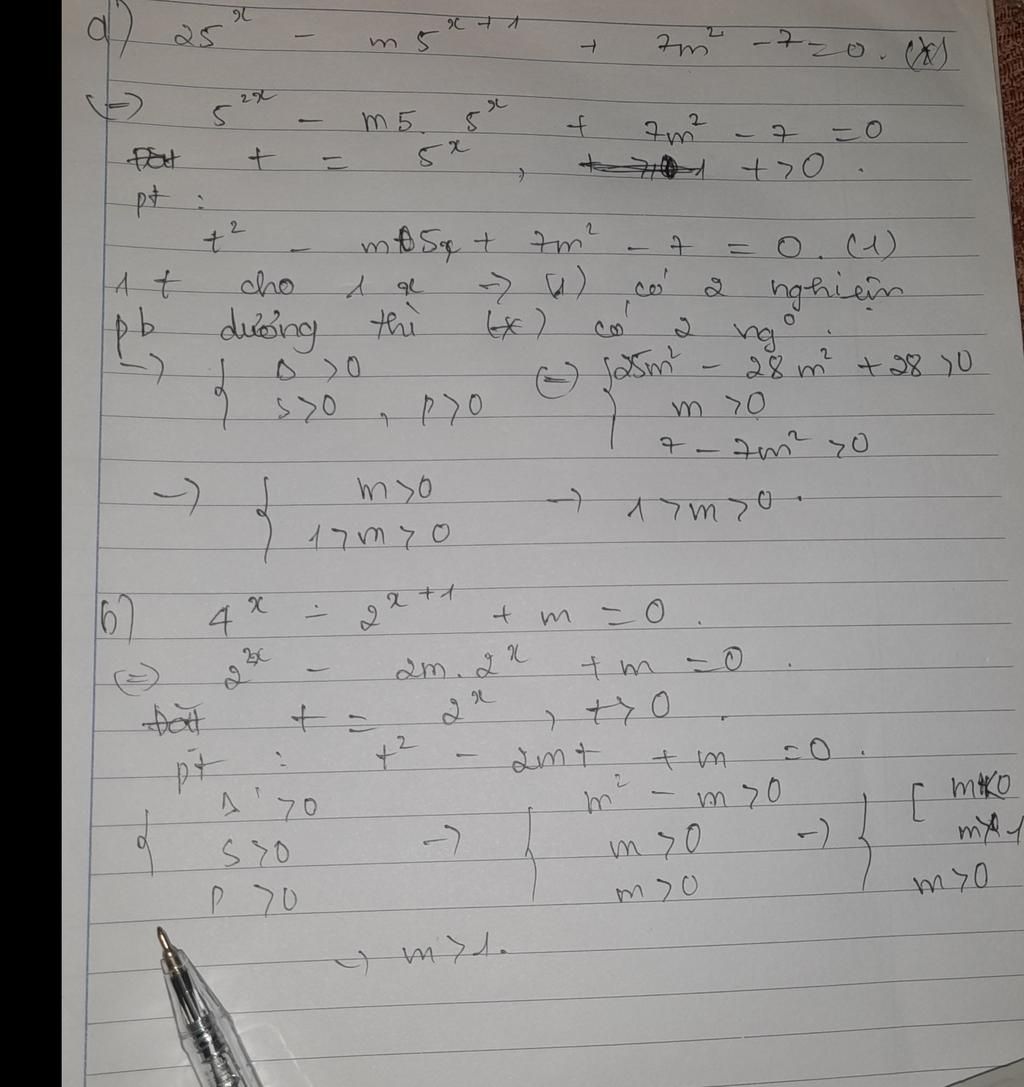 a) 25^x - m 5^{x+1} + 7m^2 - 7 = 0. (*)
(=) 5^{2x} - m5. 5^x + 7m^2 - 7 = 0
t = 5^x, t > 0.
pt :
t^2 - m5t + 7m^2 - 7 = 0. (1)
1 t cho 1 x -> (1) có 2 nghiệm
pb dương thì (*) có 2 ng°.
-> { Δ > 0 (=) { 25m^2 - 28m^2 + 28 > 0
S > 0, P > 0 m > 0
7 - 7m^2 > 0
-> { m > 0 -> 1 > m > 0.
1 > m > 0
b) 4^x - 2^{x+1} + m = 0.
(=) 2^{2x} - 2m. 2^x + m = 0.
t = 2^x, t > 0.
pt : t^2 - 2mt + m = 0.
{ Δ' > 0 -> { m^2 - m > 0 -> { [ m < 0
S > 0 m > 0 m > 1
P > 0 m > 0 m > 0
-> m > 1.